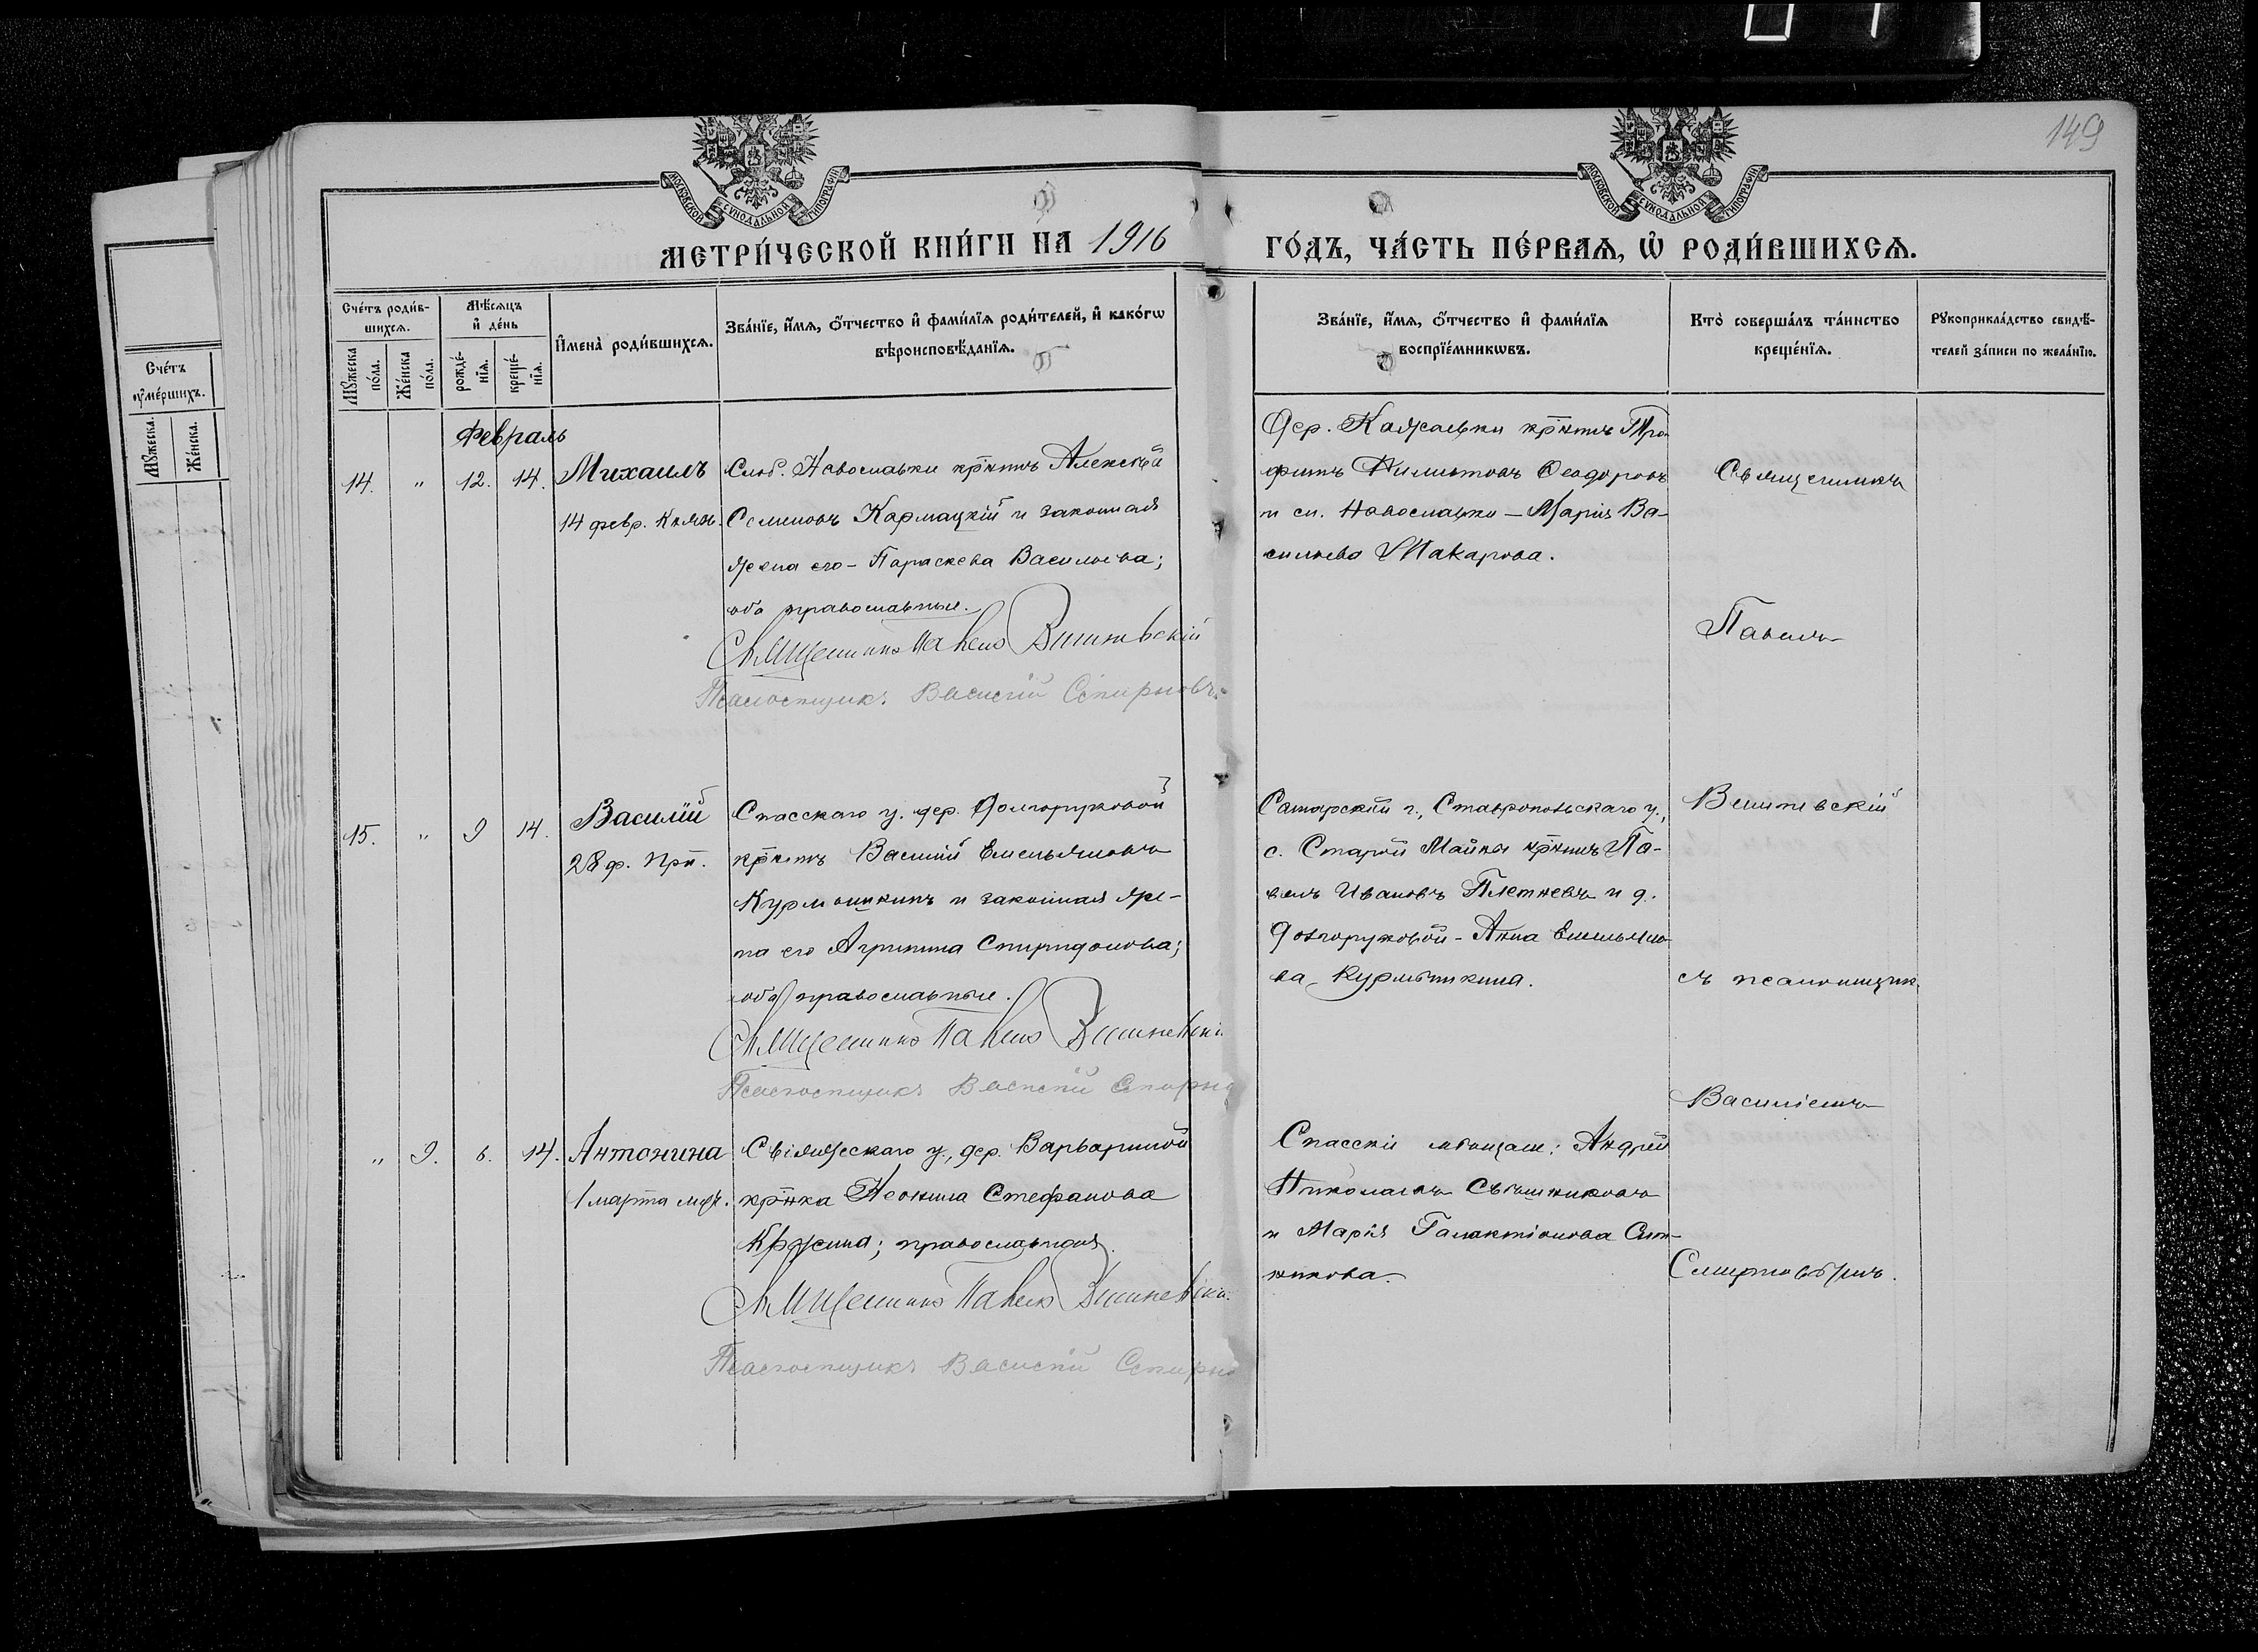 149
МОСКОВСКОЙ СУНОДАЛЬНОЙ ТИПОГРАФІИ
МОСКОВСКОЙ СУНОДАЛЬНОЙ ТИПОГРАФІИ
МЕТРИ́ЧЕСКОЙ КНИ́ГИ НА 1916
ГО́ДЪ, ЧА́СТЬ ПЕ́РВАѦ, Ѡ҆ РОДИ́ВШИХСѦ.
Сче́тъ
ᲂу҆ме́ршихъ.
Мꙋ́жеска.
Же́нска.
Сче́тъ роди́в-
шихсѧ.
Мꙋ́жеска по́ла.
Же́нска по́ла.
Мѣ́сѧцъ
и҆ де́нь
рожде́-нїѧ.
креще́-нїѧ.
И҆мена̀ роди́вшихсѧ.
Зва́нїе, и҆́мѧ, ѻ҆́тчество и҆ фами́лїѧ роди́телей, и҆ како́гѡ
вѣроисповѣ́данїѧ.
Зва́нїе, и҆́мѧ, ѻ҆́тчество и҆ фами́лїѧ
воспрїе́мникѡвъ.
Кто̀ соверша́лъ та́инство
креще́нїѧ.
Рꙋкоприкла́дство свидѣ́-
телей за́писи по жела́нїю.
Февраль
14. " 12. 14. Михаилъ
14 февр. Княз.
Слоб. Новославки кр-нинъ Алексѣй
Семеновъ Кармацкій и законная
жена его - Параскева Васильева;
оба православные.
Священникъ Павелъ Вишневскій
Псаломщикъ Василій Смирновъ.
Дер. кр-нинъ Тро-
фимъ Филиповъ Феодоровъ
и сл. Новославки - Марія Ва-
сильева Макарова.
Священникъ
Павелъ
15. " 9 14. Василій
28 ф. Прп.
Спасскаго у. дер. Долгоруковой
кр-нинъ Василій Емельяновъ
Курмышкинъ и законная же-
на его Агрипина Спиридонова;
оба православные.
Священникъ Павелъ Вишневскі
Псаломщикъ Василій Смирно
Самарской г., Ставропольскаго у.,
с. Старой Майны кр-нинъ Па-
велъ Ивановъ Плетневъ и д.
Долгоруковой - Анна Емельяно-
ва Курмышкина.
Вишневскій
съ псаломщик.
Василіемъ
" 9. 6. 14. Антонина
1 марта мч.
Свіяжескаго у., дер. Варвариной
кр-нка Неонила Стефанова
православная.
Священникъ Павелъ Вишневскі
Псаломщикъ Василій Смирно
Спасскіе мѣщане: Андрей
Николаевъ
и Марія Галактіонова Сит-
никова.
Смирновымъ.